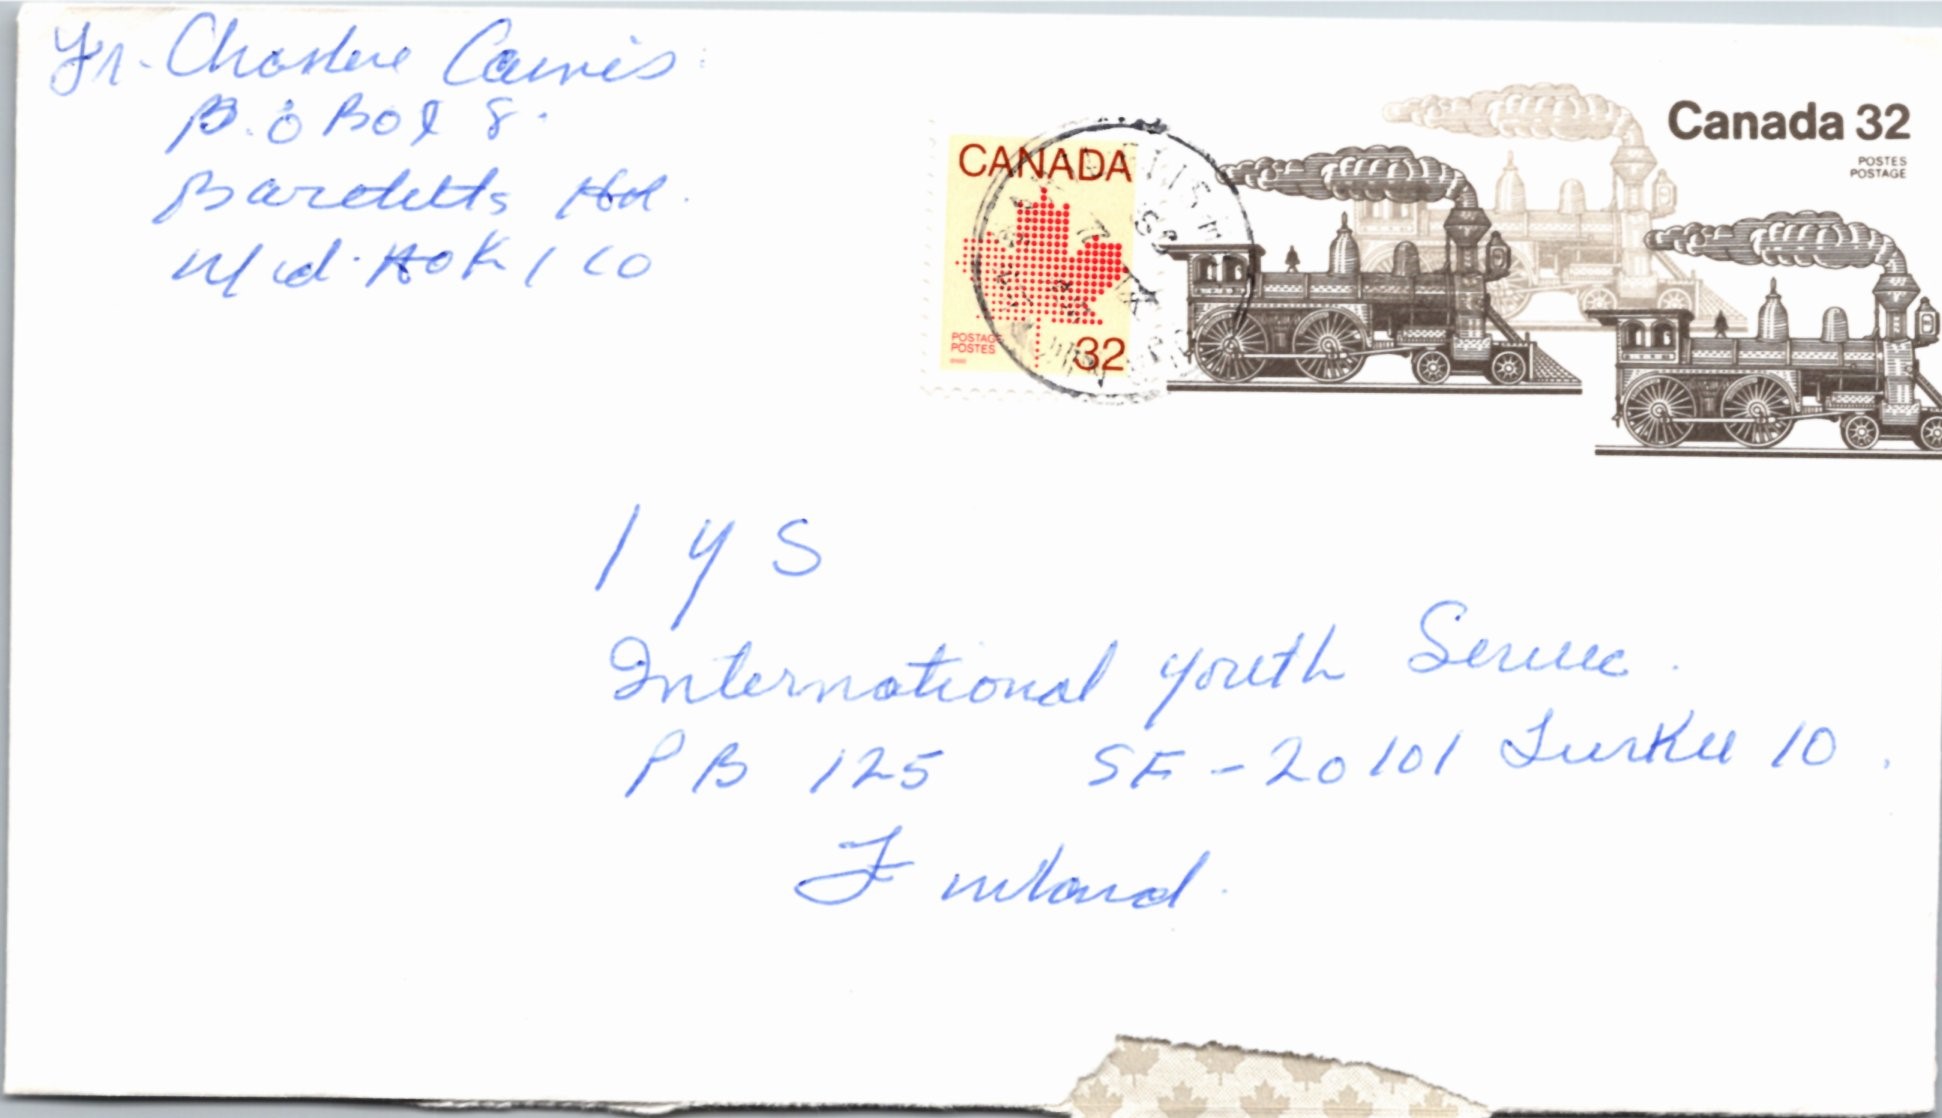 Fr. Charlene Cairns
P.O Box 8.
Bartletts Hr.
Nfld. A0K 1C0
CANADA
POSTAGE
POSTES
32
Canada 32
POSTES
POSTAGE
I Y S
International Youth Service.
PB 125 SF-20101 Turku 10.
Finland.